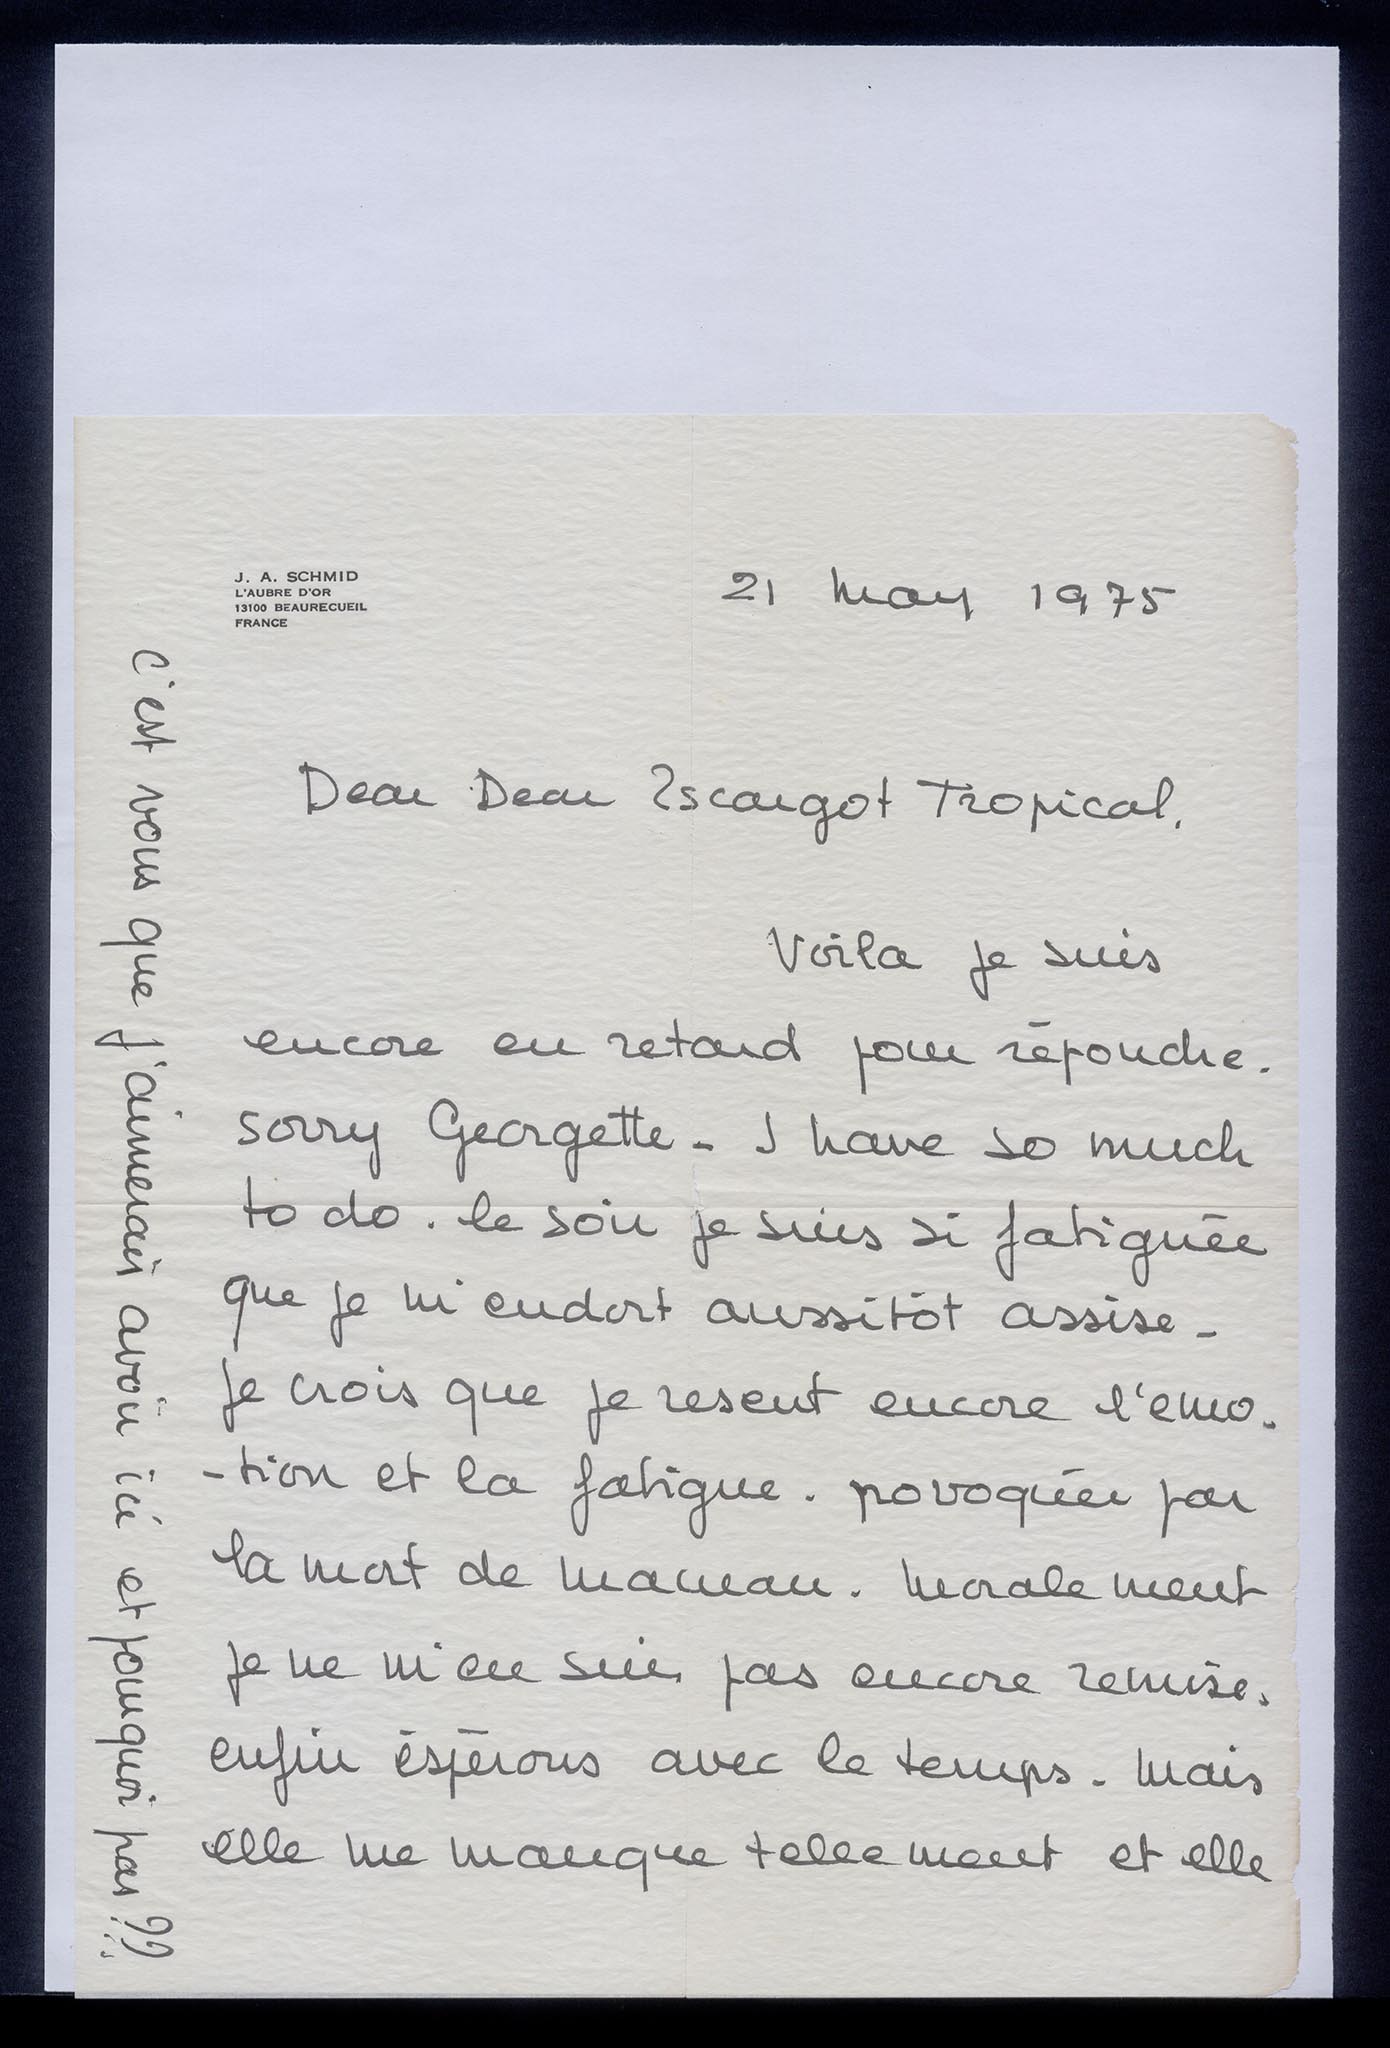 J. A. SCHMID
L'AUBRE D'OR
13100 BEAURECUEIL
FRANCE
21 May 1975
Dear Dear Escargot Tropical.
Voila je suis
encore en retard pour répondre.
sorry Georgette - I have so much
to do. le soir je suis si fatiguée
que je m'endort aussitôt assise -
je crois que je resent encore l'emo-
-tion et la fatigue. povoquée par
la mort de maman. Moralement
je ne m'en suis pas encore remise.
enfin éspérons avec le temps. Mais
elle me manque tellement et elle
c'est vous que j'aimerais avoir ici et pourquoi pas??